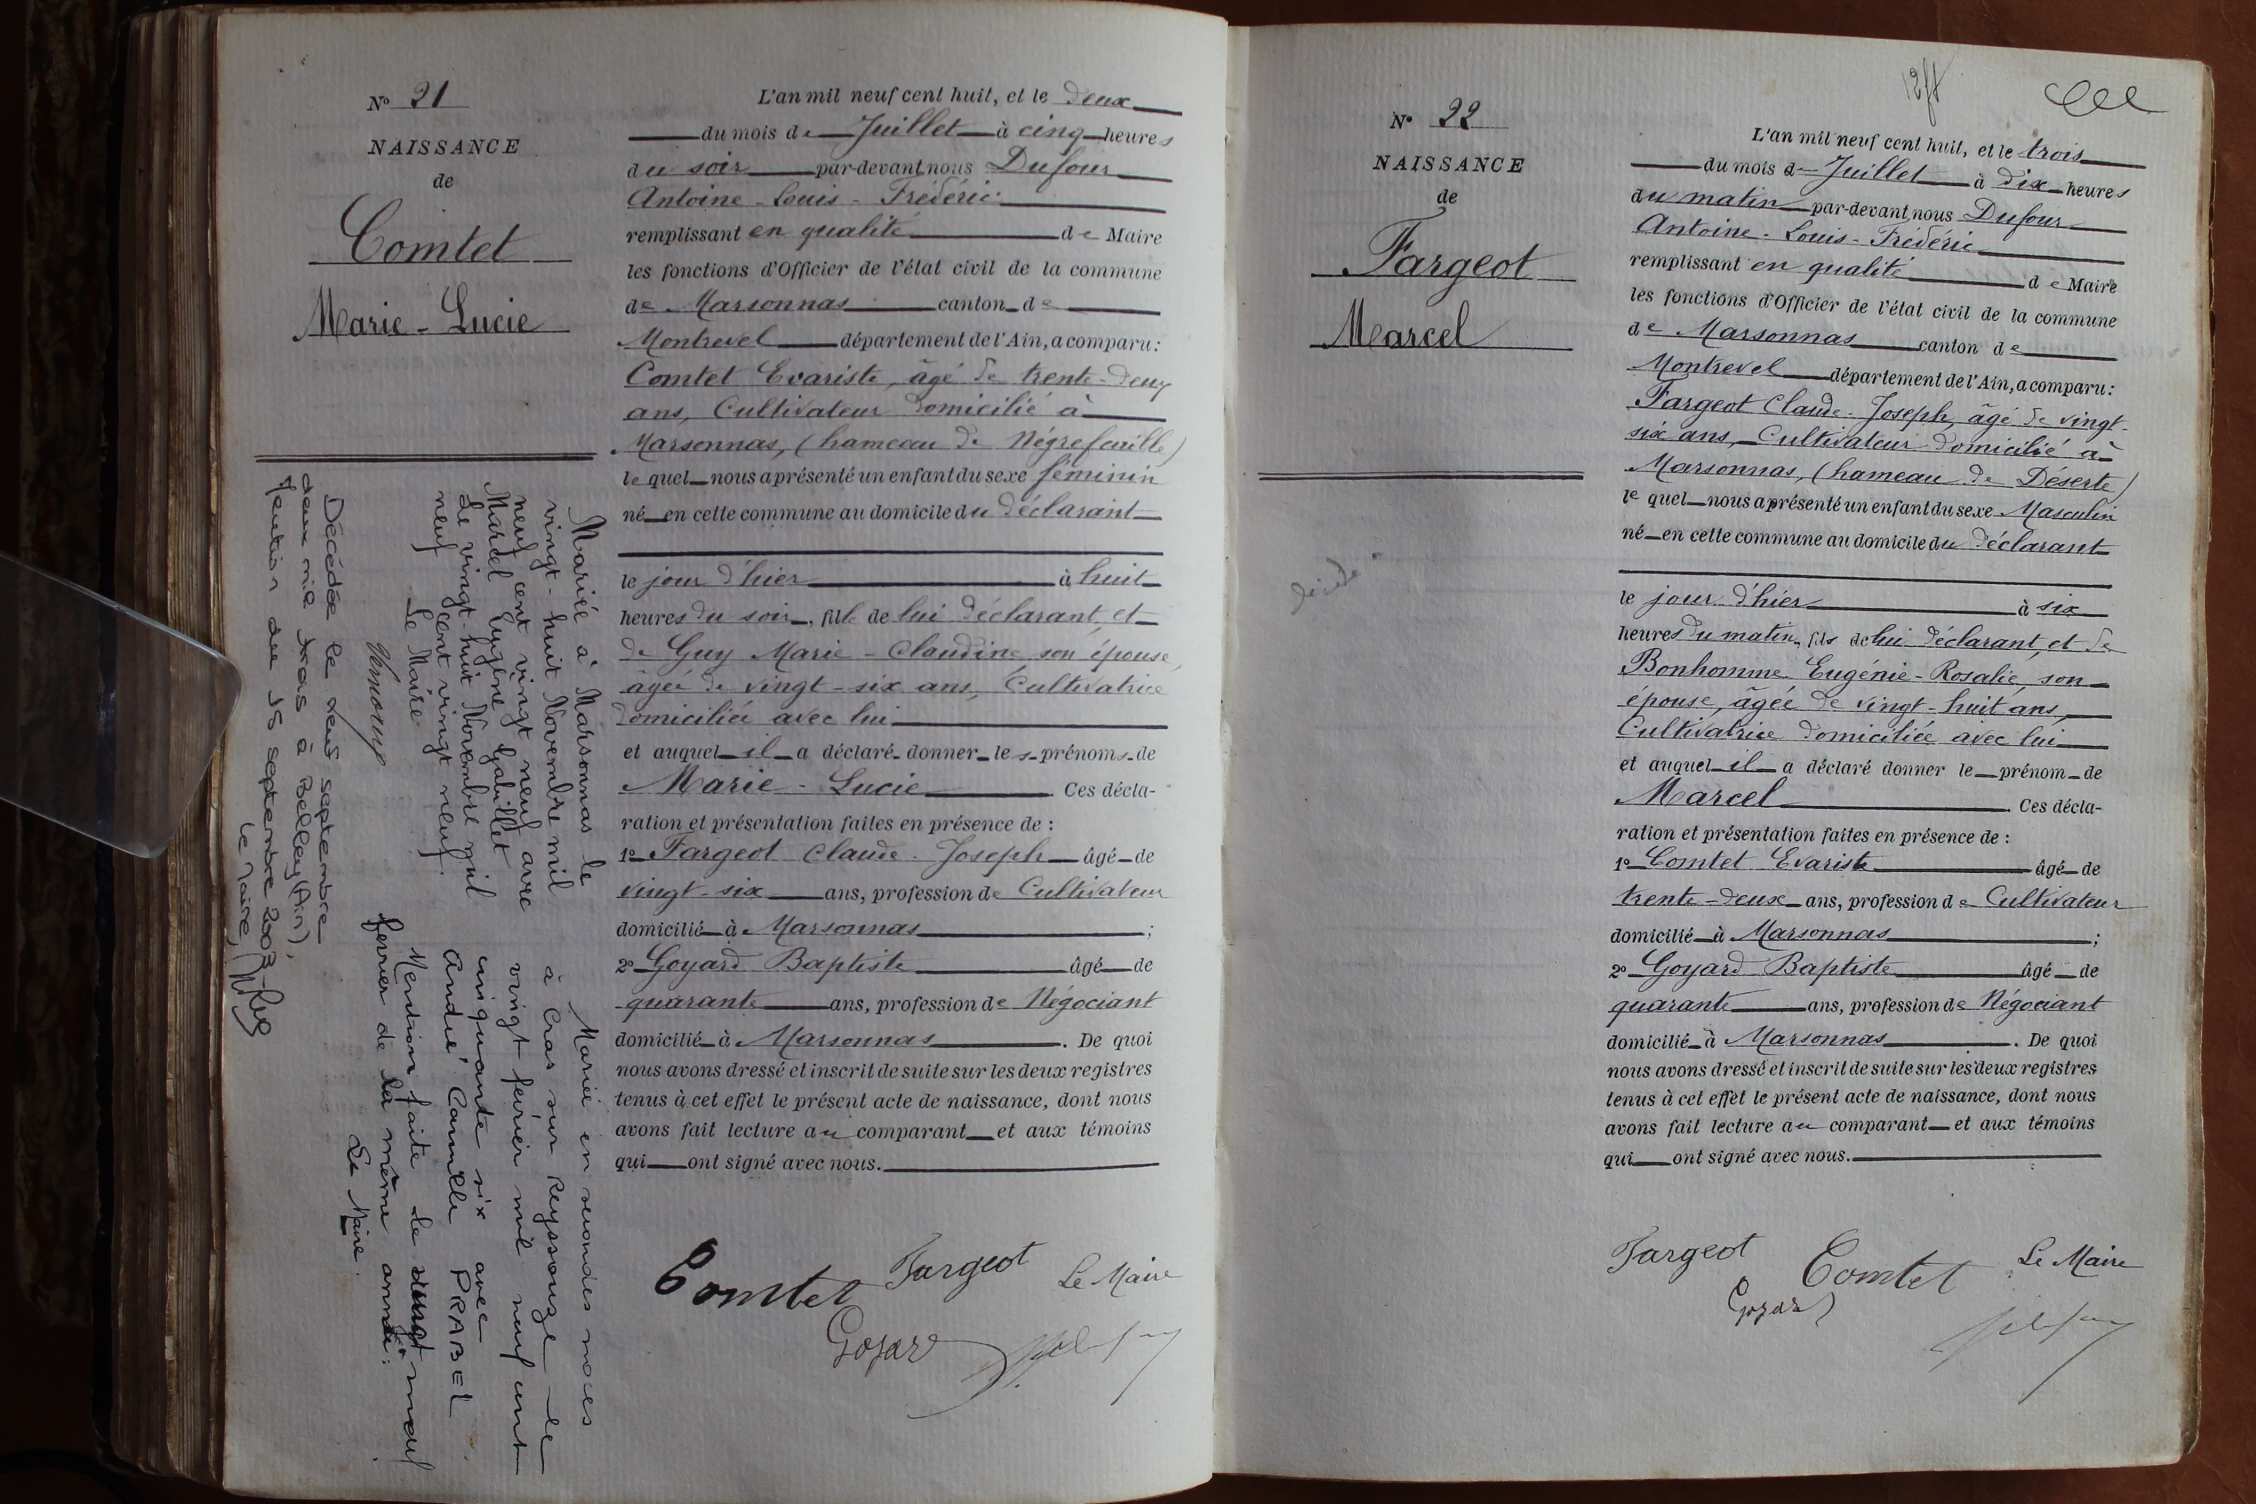 N° 21
NAISSANCE
de
Comtet
Marie - Lucie
L'an mil neuf cent huit, et le deux
du mois de Juillet à cinq heures
du soir par-devant nous Dufour
Antoine - Louis - Frédéric
remplissant en qualité de Maire
les fonctions d'Officier de l'état civil de la commune
de Marsonnas canton de
Montrevel département de l'Ain, a comparu :
Comtet Evariste, âgé de trente-deux
ans, Cultivateur domicilié à
Marsonnas, (hameau de Négrefeuille)
lequel nous a présenté un enfant du sexe féminin
né en cette commune au domicile du déclarant
le jour d'hier à huit
heures du soir, fille de lui déclarant, et
de Guy Marie - Claudine son épouse,
âgée de vingt-six ans, Cultivatrice
domiciliée avec lui
et auquel il a déclaré donner les prénoms de
Marie - Lucie Ces décla-
ration et présentation faites en présence de :
1° Fargeot Claude - Joseph âgé de
vingt-six ans, profession de Cultivateur
domicilié à Marsonnas ;
2° Goyard Baptiste âgé de
quarante ans, profession de Négociant
domicilié à Marsonnas . De quoi
nous avons dressé et inscrit de suite sur les deux registres
tenus à cet effet le présent acte de naissance, dont nous
avons fait lecture au comparant et aux témoins
qui ont signé avec nous.
Comtet Fargeot Le Maire
Goyard
Mariée à Marsonnas le
vingt-huit Novembre mil
neuf cent vingt neuf avec
Marcel Eugène Gabillet
Le vingt-huit Novembre mil
neuf cent vingt neuf.
Le Maire
Mariée en secondes noces
à Cras sur Reyssouze le
vingt février mil neuf cent
cinquante six avec
André Camille PRABEL.
Mention faite le vingt neuf
février de la même année.
Le Maire.
Décédée le deux septembre
deux mille trois à Belley (Ain),
Mention du 15 septembre 2003
Le Maire,
N° 22
NAISSANCE
de
Fargeot
Marcel
L'an mil neuf cent huit, et le trois
du mois de Juillet à dix heures
du matin par-devant nous Dufour
Antoine - Louis - Frédéric
remplissant en qualité de Maire
les fonctions d'Officier de l'état civil de la commune
de Marsonnas canton de
Montrevel département de l'Ain, a comparu :
Fargeot Claude - Joseph, âgé de vingt-
six ans, Cultivateur domicilié à
Marsonnas, (hameau de Déserte)
lequel nous a présenté un enfant du sexe Masculin
né en cette commune au domicile du déclarant
le jour d'hier à six
heures du matin, fils de lui déclarant, et de
Bonhomme Eugénie - Rosalie, son
épouse, âgée de vingt-huit ans,
Cultivatrice domiciliée avec lui
et auquel il a déclaré donner le prénom de
Marcel . Ces décla-
ration et présentation faites en présence de :
1° Comtet Evariste âgé de
trente-deux ans, profession de Cultivateur
domicilié à Marsonnas ;
2° Goyard Baptiste âgé de
quarante ans, profession de Négociant
domicilié à Marsonnas . De quoi
nous avons dressé et inscrit de suite sur les deux registres
tenus à cet effet le présent acte de naissance, dont nous
avons fait lecture au comparant et aux témoins
qui ont signé avec nous.
Fargeot Comtet Le Maire
Goyard